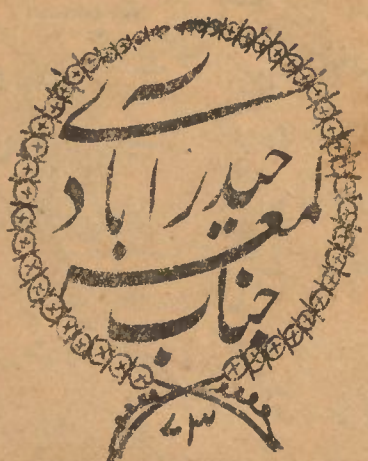 جناب
لمعہ
حیدرآبادی
۷۳